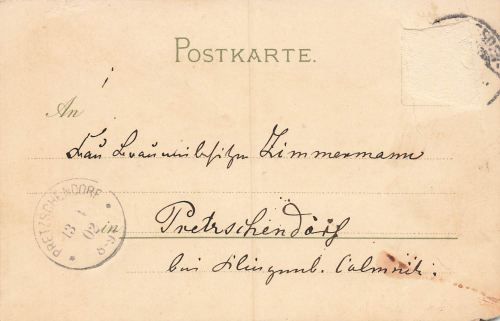 POSTKARTE.
An
Frau Brauereibesitzer Zimmermann
in Pretzschendorf
bei Klingenb. Colmnitz.
PRETZSCHENDORF
13 1 02